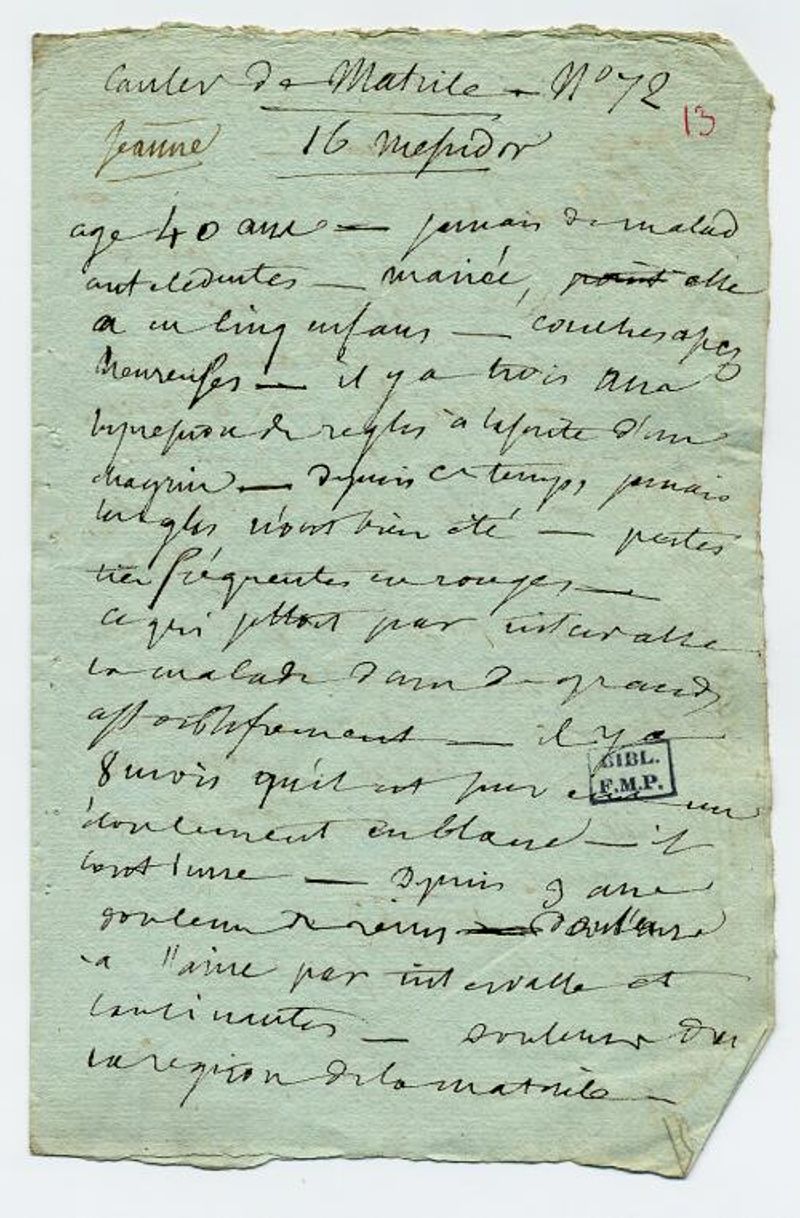 Cancer de Matrice - N° 72
13
Jeanne 16 Messidor
age 40 ans — jamais de malad
antecedentes — mariée, point elle
a eu cinq enfans — couches assez
heureuses — il y a trois ans
supression de regles a la suite d'un
chagrin — depuis ce temps jamais
les regles n'ont bien été — pertes
tres fréquentes en rouges —
ce qui jettoit par intervalle
la malade dans de grands
affoiblissement — il y a
8 mois qu'il est un
BIBL.
F.M.P.
écoulement en blanc — il
continue — depuis 3 ans
douleur de reins — douleurs
a l'aine par intervalle et
lancinantes — douleur dans
la region de la matrice —